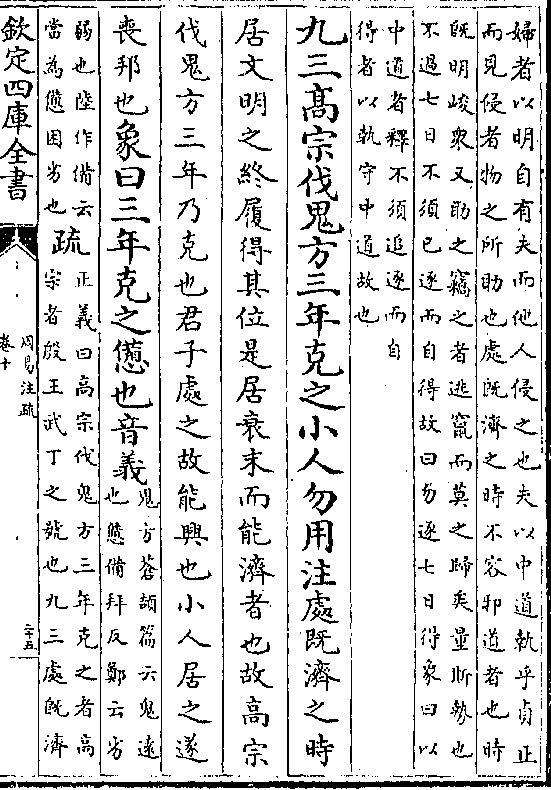 婦者以明自有夫而他人侵之也夫以中道執乎貞正
而見侵者物之所助也處既濟之時不容邪道者也時
既明峻衆又助之竊之者逃竄而莫之歸矣量斯勢也
不過七日不須已逐而自得故曰勿逐七日得象曰以
中道者釋不須追逐而自
得者以執守中道故也
九三高宗伐鬼方三年克之小人勿用注處既濟之時
居文明之終履得其位是居衰末而能濟者也故高宗
伐鬼方三年乃克也君子處之故能興也小人居之遂
喪邦也象曰三年克之憊也音義
鬼方蒼頡篇云鬼遠
也憊備拜反鄭云劣
弱也陸作備云
當為憊困劣也
疏
正義曰高宗伐鬼方三年克之者高
宗者殷王武丁之號也九三處既濟
欽定四庫全書
周易注疏
卷十
二十五